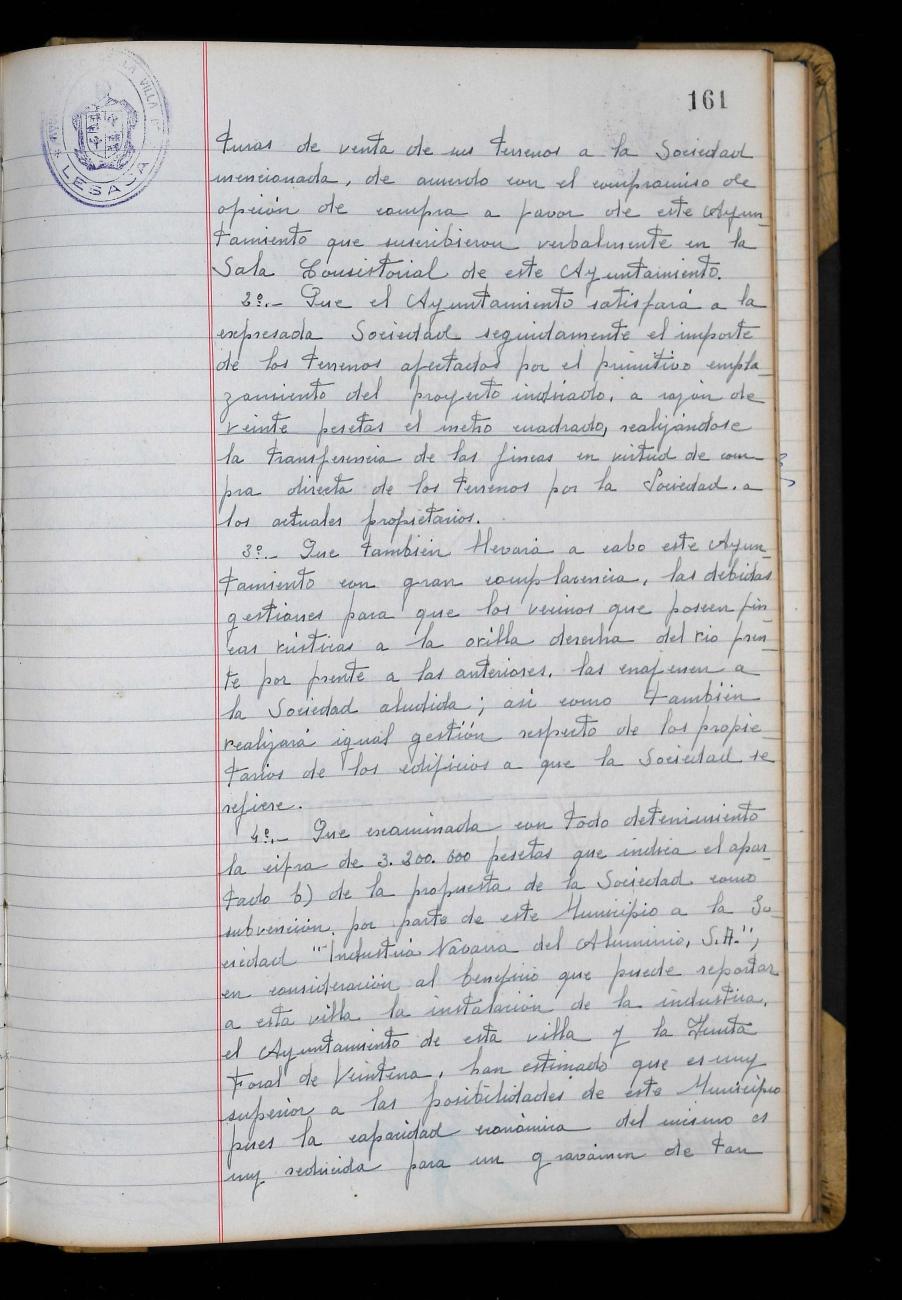 161
LA VILLA
LESACA
turas de venta de sus terrenos a la Sociedad
mencionada, de acuerdo con el compromiso de
opción de compra a favor de este Ayun-
tamiento que suscribieron verbalmente en la
Sala Consistorial de este Ayuntamiento.
2º.- Que el Ayuntamiento satisfará a la
expresada Sociedad seguidamente el importe
de los terrenos afectados por el primitivo empla-
zamiento del proyecto indicado, a razón de
veinte pesetas el metro cuadrado, realizándose
la transferencia de las fincas en virtud de com-
pra directa de los terrenos por la Sociedad, a
los actuales propietarios.
3º.- Que también llevará a cabo este Ayun-
tamiento con gran complacencia, las debidas
gestiones para que los vecinos que poseen fin-
cas rústicas a la orilla derecha del rio fren-
te por frente a las anteriores, las enajenen a
la Sociedad aludida; así como también
realizará igual gestión respecto de los propie-
tarios de los edificios a que la Sociedad se
refiere.
4º.- Que examinada con todo detenimiento
la cifra de 3.200.000 pesetas que indica el apar-
tado b) de la propuesta de la Sociedad como
subvención, por parte de este Municipio a la So-
ciedad "Industria Navarra del Aluminio, S.A.",
en consideración al beneficio que puede reportar
a esta villa la instalación de la industria,
el Ayuntamiento de esta villa y la Junta
Foral de Veintena, han estimado que es muy
superior a las posibilidades de este Municipio
pues la capacidad económica del mismo es
muy reducida para un gravámen de tan